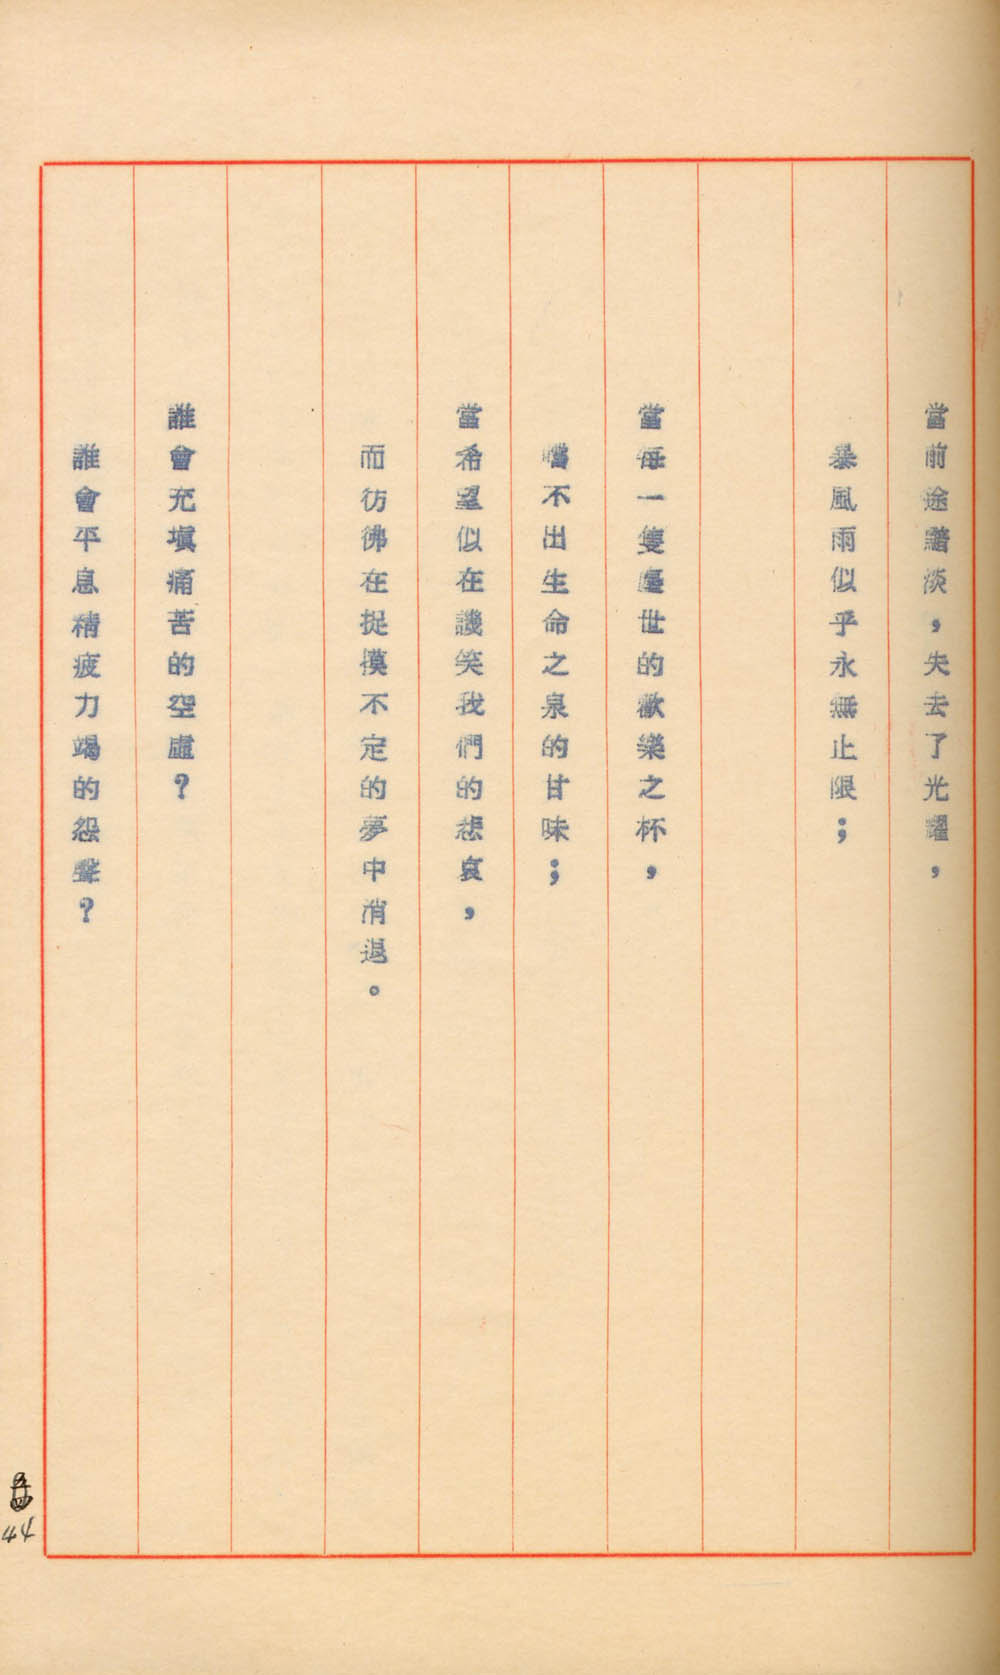 當前途黯淡，失去了光耀，
暴風雨似乎永無止限；
當每一隻塵世的歡樂之杯，
嚐不出生命之泉的甘味；
當希望似在譏笑我們的悲哀，
而彷彿在捉摸不定的夢中消退。
誰會充塡痛苦的空虛？
誰會平息精疲力竭的怨聲？
44